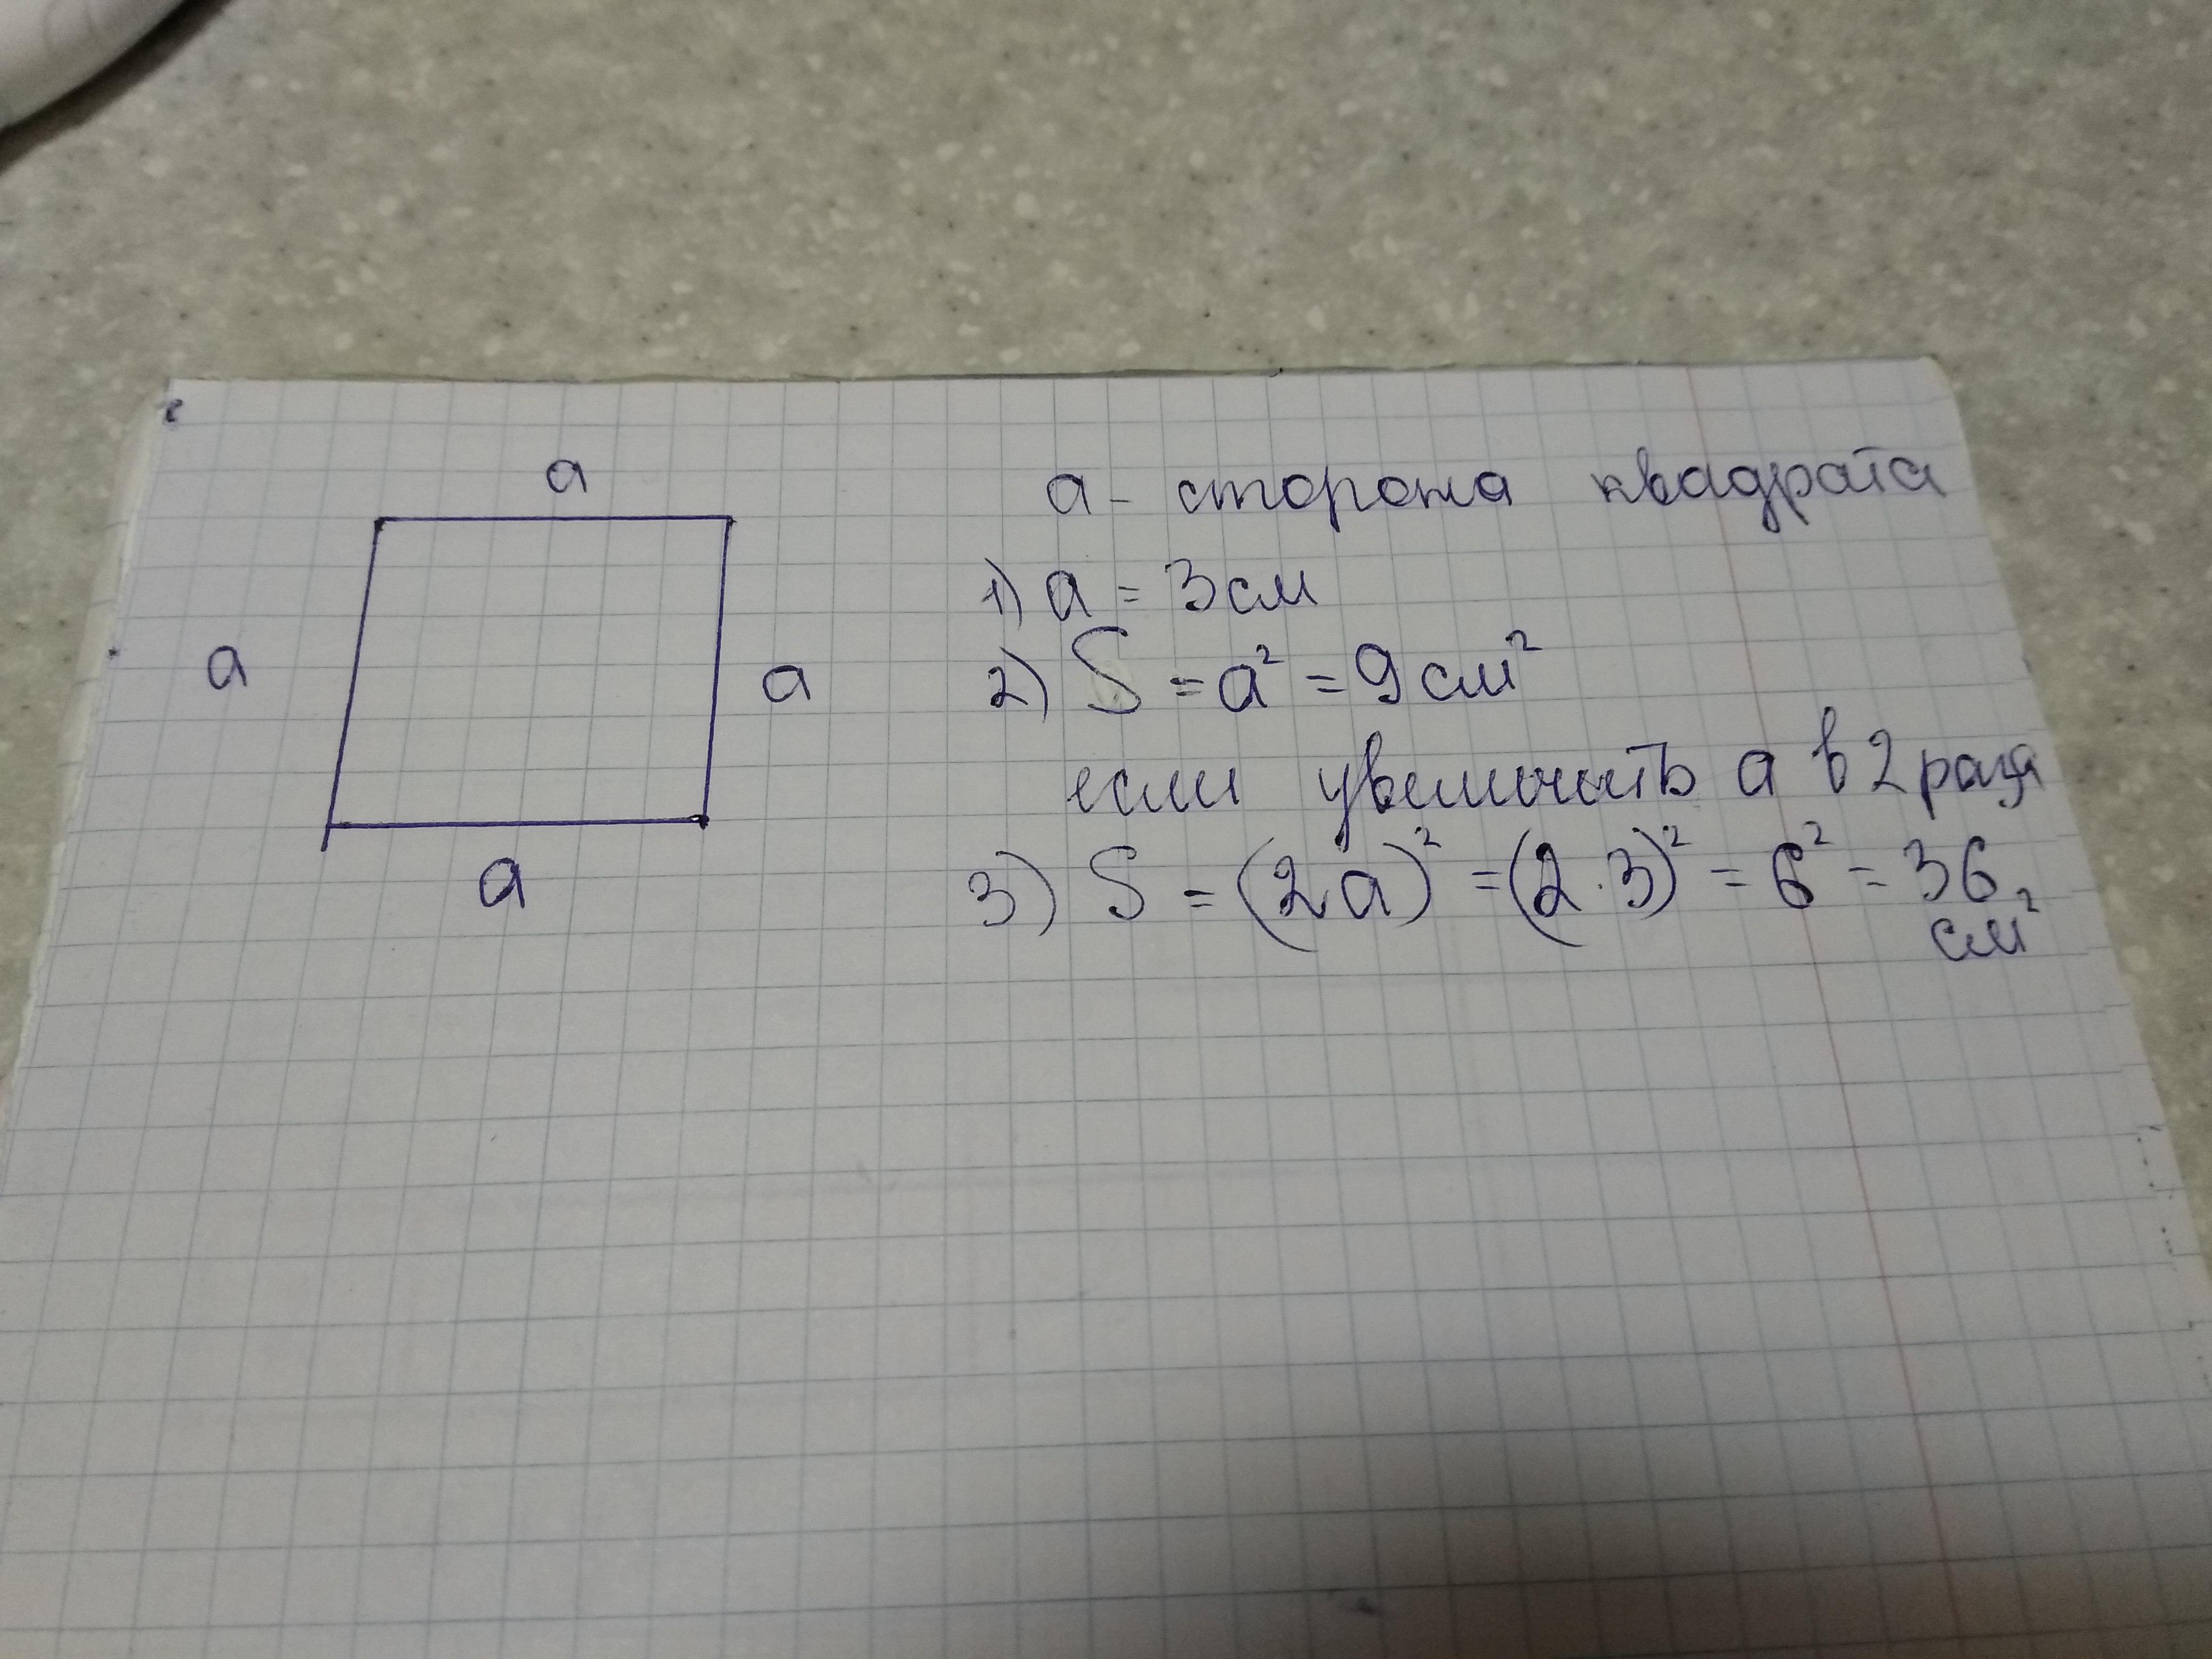 a
a - сторона квадрата
1) a = 3 см
a
a
2) S = a² = 9 см²
если увеличить a в 2 раза
a
3) S = (2a)² = (2·3)² = 6² = 36
см²